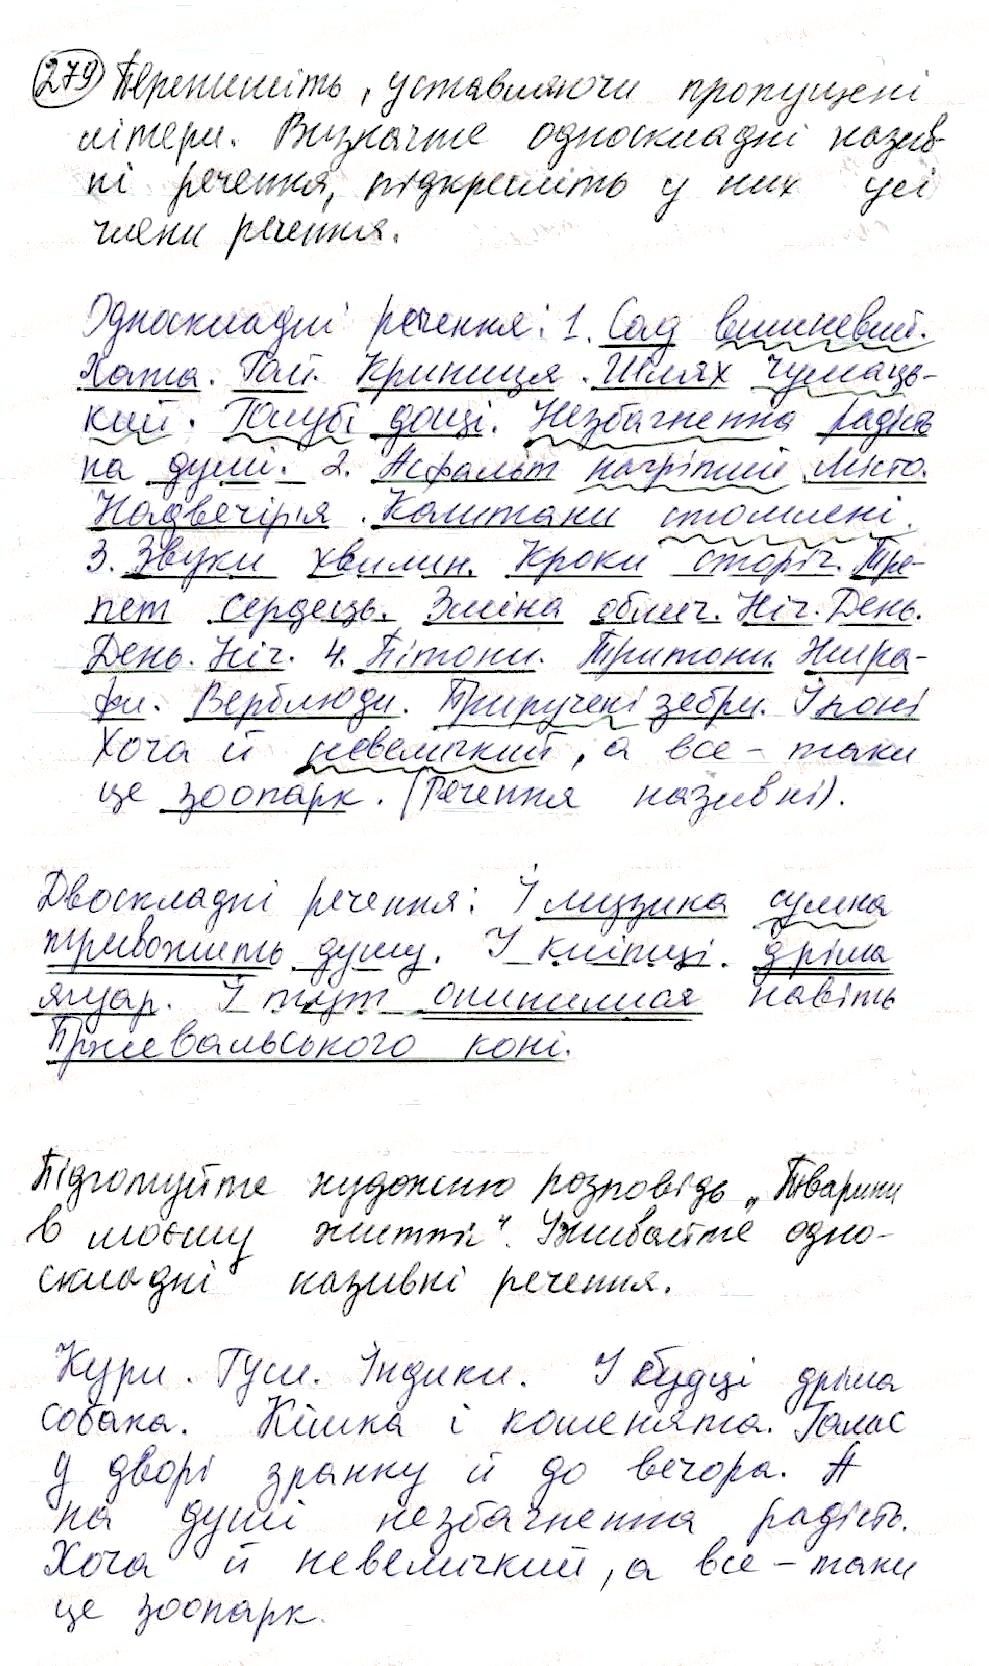 279 Перепишіть, уставляючи пропущені
літери. Визначте односкладні назив-
ні речення, підкресліть у них усі
члени речення.
Односкладні речення: 1. Сад вишневий.
Хата. Гай. Криниця. Шлях Чумаць-
кий. Голубі дощі. Незбагненна радість
на душі. 2. Асфальт нагрітий. Місто.
Надвечір'я. Каштани стомлені.
3. Звуки хвилин. Кроки сторіч. Тре-
пет сердець. Зміна облич. Ніч. День.
День. Ніч. 4. Пітони. Тритони. Жира-
фи. Верблюди. Приручені зебри. І поні
Хоча й невеличкий, а все-таки
це зоопарк. (Речення називні).
Двоскладні речення: І музика сумна
тривожить душу. У клітці дріма
ягуар. І тут опинилися навіть
Пржевальського коні.
Підготуйте художню розповідь „Тварини
в моєму житті". Уживайте одно-
складні називні речення.
Кури. Гуси. Індики. У будці дріма
собака. Кішка і кошенята. Галас
у дворі зранку й до вечора. А
на душі незбагненна радість.
Хоча й невеличкий, а все-таки
це зоопарк.